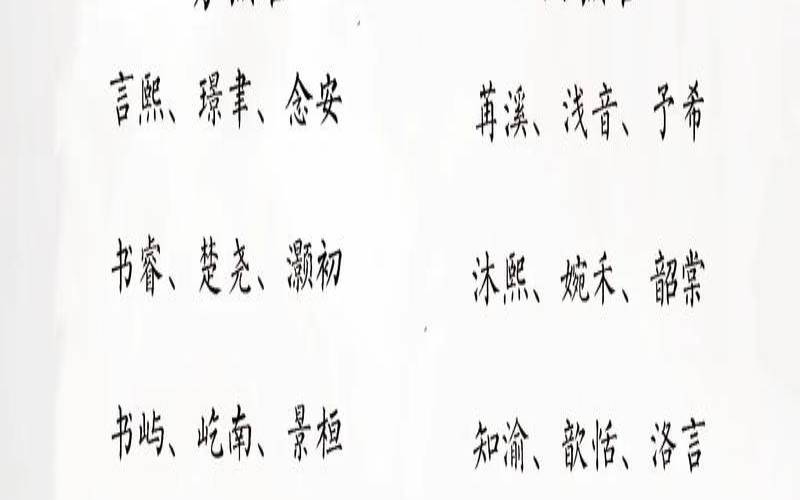 言熙、璟聿、念安
苒溪、浅音、予希
书睿、楚尧、灏初
沐熙、婉禾、韶棠
书屿、屹南、景桓
知渝、歆恬、洛言